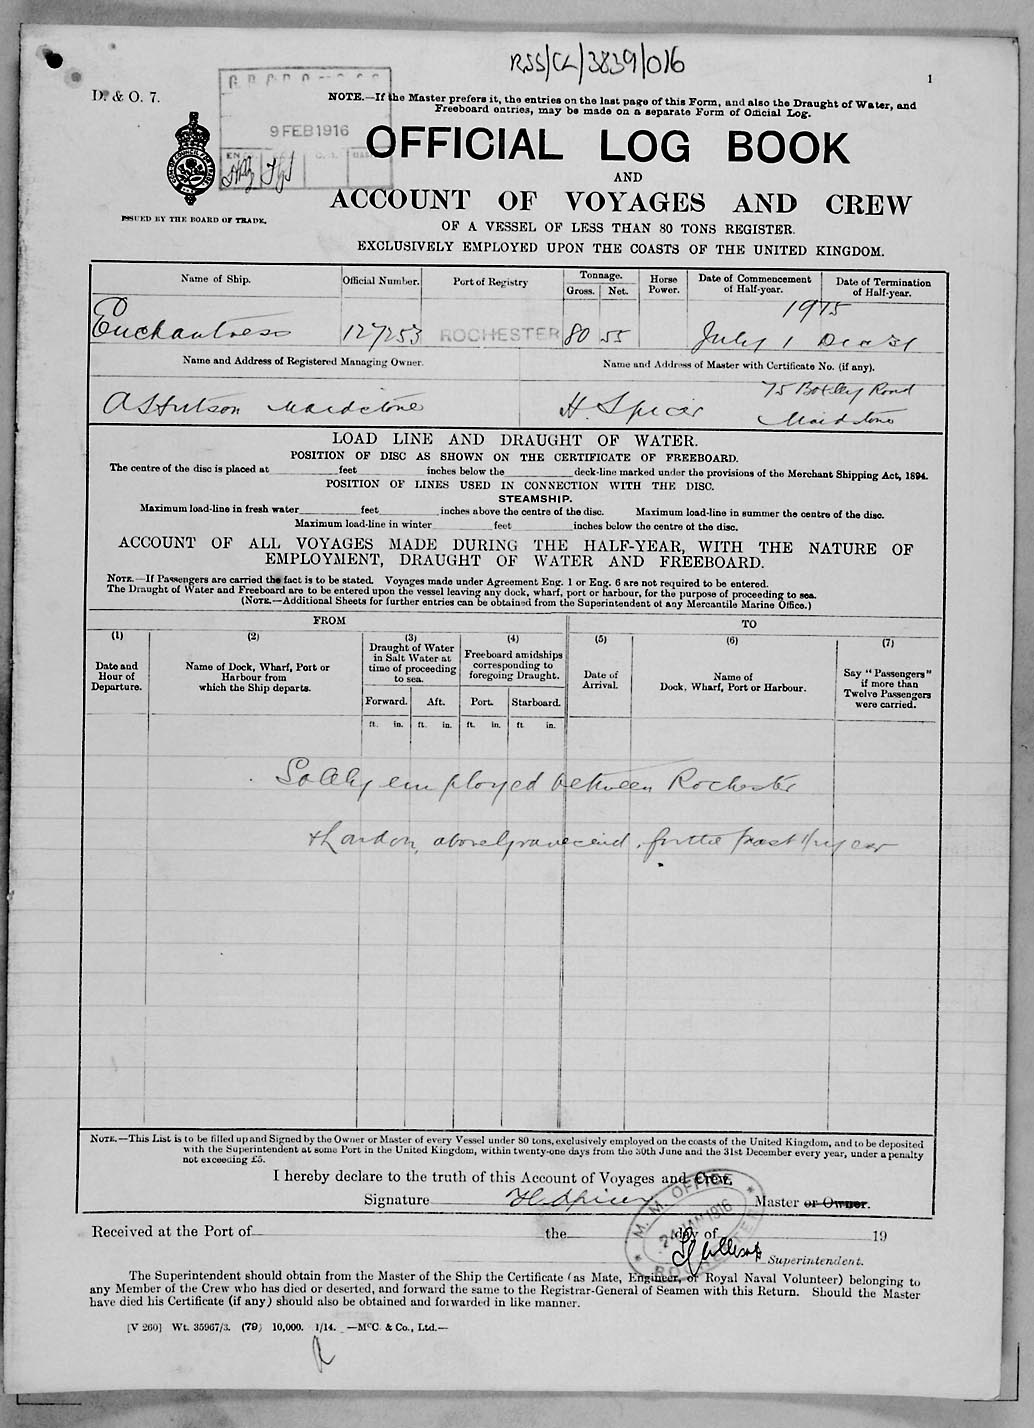 RSS/CL/3839/016
1
D. & O. 7.
9 FEB 1916
NOTE.—If the Master prefers it, the entries on the last page of this Form, and also the Draught of Water, and
Freeboard entries, may be made on a separate Form of Official Log.
OFFICIAL LOG BOOK
AND
ACCOUNT OF VOYAGES AND CREW
ISSUED BY THE BOARD OF TRADE.
OF A VESSEL OF LESS THAN 80 TONS REGISTER.
EXCLUSIVELY EMPLOYED UPON THE COASTS OF THE UNITED KINGDOM.
Name of Ship. Official Number. Port of Registry Tonnage. Gross. Net. Horse Power. Date of Commencement of Half-year. Date of Termination of Half-year.
1915
Enchantress 127253 ROCHESTER 80 55 July 1 Dec 31
Name and Address of Registered Managing Owner. Name and Address of Master with Certificate No. (if any).
A S Hutson Maidstone H. Spicer 75 Boxley Road
Maidstone
LOAD LINE AND DRAUGHT OF WATER.
POSITION OF DISC AS SHOWN ON THE CERTIFICATE OF FREEBOARD.
The centre of the disc is placed at feet inches below the deck-line marked under the provisions of the Merchant Shipping Act, 1894.
POSITION OF LINES USED IN CONNECTION WITH THE DISC.
STEAMSHIP.
Maximum load-line in fresh water feet inches above the centre of the disc. Maximum load-line in summer the centre of the disc.
Maximum load-line in winter feet inches below the centre of the disc.
ACCOUNT OF ALL VOYAGES MADE DURING THE HALF-YEAR, WITH THE NATURE OF
EMPLOYMENT, DRAUGHT OF WATER AND FREEBOARD.
NOTE.—If Passengers are carried the fact is to be stated. Voyages made under Agreement Eng. 1 or Eng. 6 are not required to be entered.
The Draught of Water and Freeboard are to be entered upon the vessel leaving any dock, wharf, port or harbour, for the purpose of proceeding to sea.
(NOTE.—Additional Sheets for further entries can be obtained from the Superintendent of any Mercantile Marine Office.)
FROM TO
(1) (2) (3) (4) (5) (6) (7)
Date and Hour of Departure. Name of Dock, Wharf, Port or Harbour from which the Ship departs. Draught of Water in Salt Water at time of proceeding to sea. Freeboard amidships corresponding to foregoing Draught. Date of Arrival. Name of Dock, Wharf, Port or Harbour. Say "Passengers" if more than Twelve Passengers were carried.
Forward. Aft. Port. Starboard.
ft. in. ft. in. ft. in. ft. in.
Solely employed between Rochester
& London, above Gravesend, for the past 1/2 year
NOTE.—This List is to be filled up and Signed by the Owner or Master of every Vessel under 80 tons, exclusively employed on the coasts of the United Kingdom, and to be deposited
with the Superintendent at some Port in the United Kingdom, within twenty-one days from the 30th June and the 31st December every year, under a penalty
not exceeding £5.
I hereby declare to the truth of this Account of Voyages and Crew.
Signature H. Spicer Master or Owner.
M. M. OFFICE
24 JAN 1916
ROCHESTER
Received at the Port of the day of 19
Superintendent.
The Superintendent should obtain from the Master of the Ship the Certificate (as Mate, Engineer, or Royal Naval Volunteer) belonging to
any Member of the Crew who has died or deserted, and forward the same to the Registrar-General of Seamen with this Return. Should the Master
have died his Certificate (if any) should also be obtained and forwarded in like manner.
[V 260] Wt. 35967/3. (79) 10,000. 1/14. —McC. & Co., Ltd.—